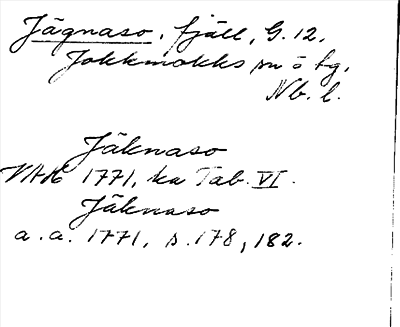 Jägnaso, fjäll, G. 12.
Jokkmokks sn o tg,
Nb. l.
Jäknaso
VAH 1771, ka Tab. VI.
Jäknaso
a. a. 1771, s. 178, 182.